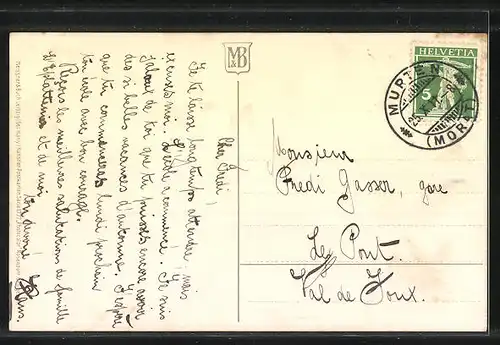 Cher Fredi,
Je te laisse longtemps attendre, mais
excusez moi. L'école a commencé. Je suis
jaloux de toi que tu puisses encore avoir
des si belles vacances d'automne. J'espère
que tu commenceras lundi prochain
ton école avec bon courage.
Reçois les meilleures salutations de famille
et de moi
Ton dévoué
Hans.
M&B
HELVETIA
5
MURTEN
(MORAT)
Monsieur
Fredi Gasser, gare
Le Pont.
Val de Joux.